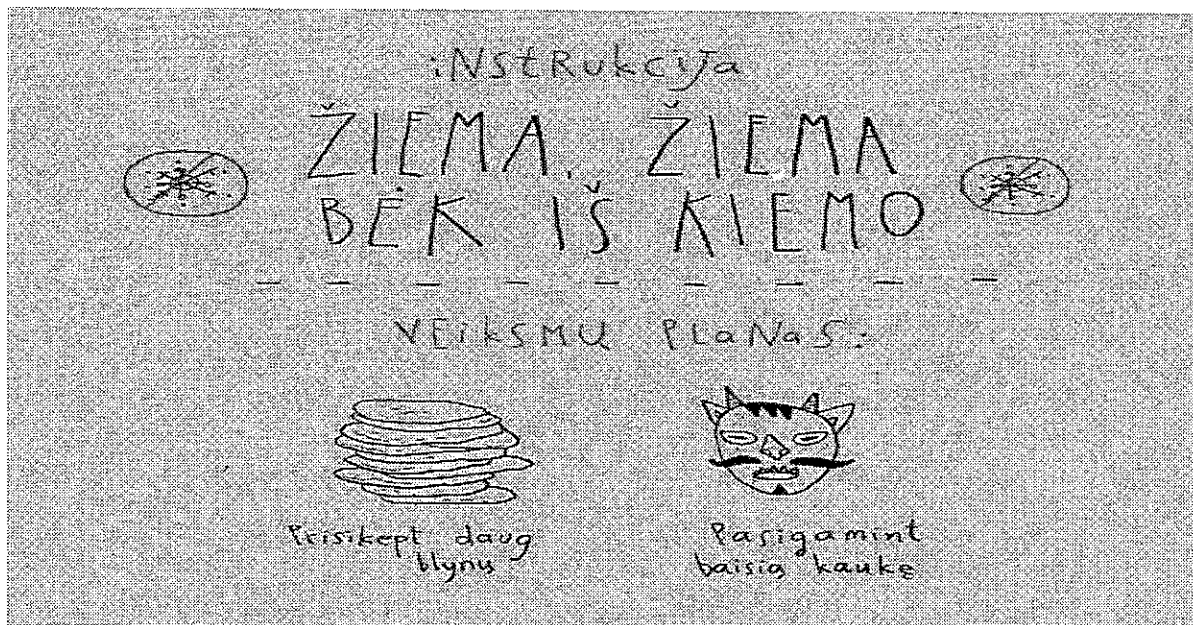 iNStRukcija
ŽIEMA, ŽIEMA
BĖK IŠ KIEMO
VEikSMŲ PLaNaS:
Prisikept daug
blynų
Pasigamint
baisią kaukę